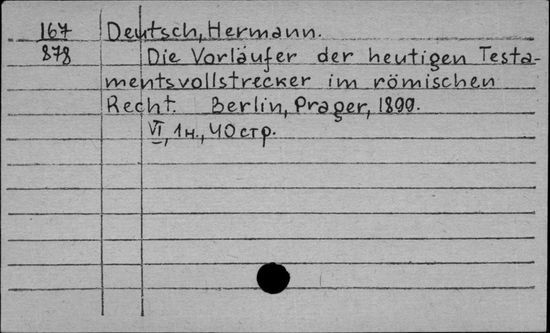 167 Deutsch, Hermann.
878 Die Vorläufer der heutigen Testa-
mentsvollstrecker im römischen
Recht. Berlin, Prager, 1899.
VI, 1 н., 40 стр.